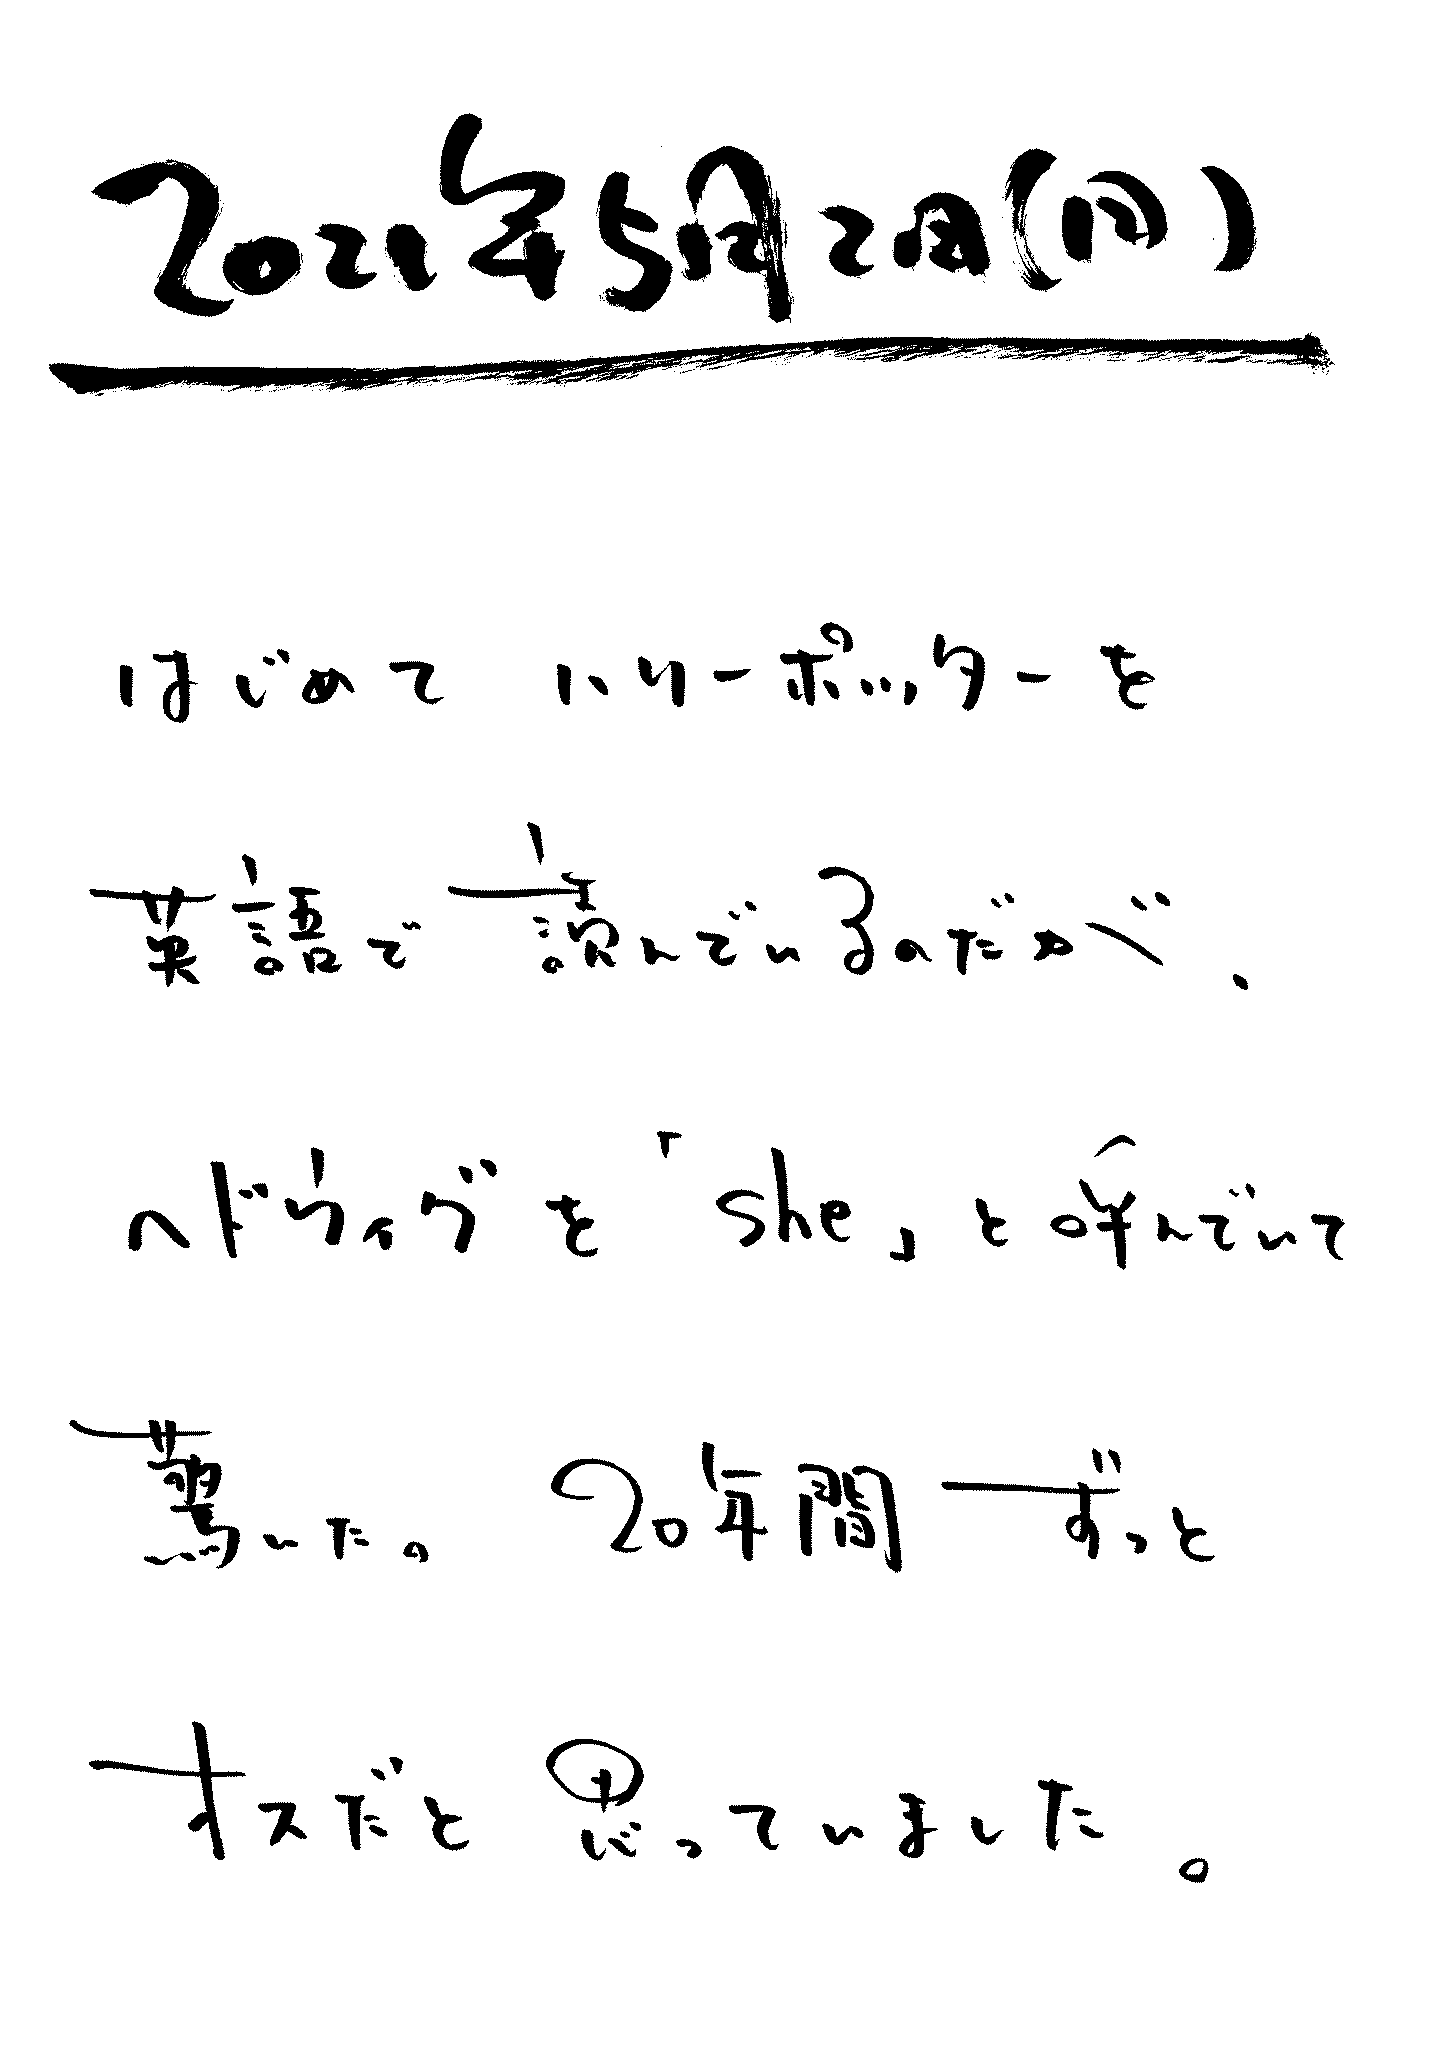 2021年5月2日(日)
はじめて ハリーポッターを
英語で読んでいるのだが、
ヘドウィグを「she」と呼んでいて
驚いた。 20年間ずっと
オスだと思っていました。